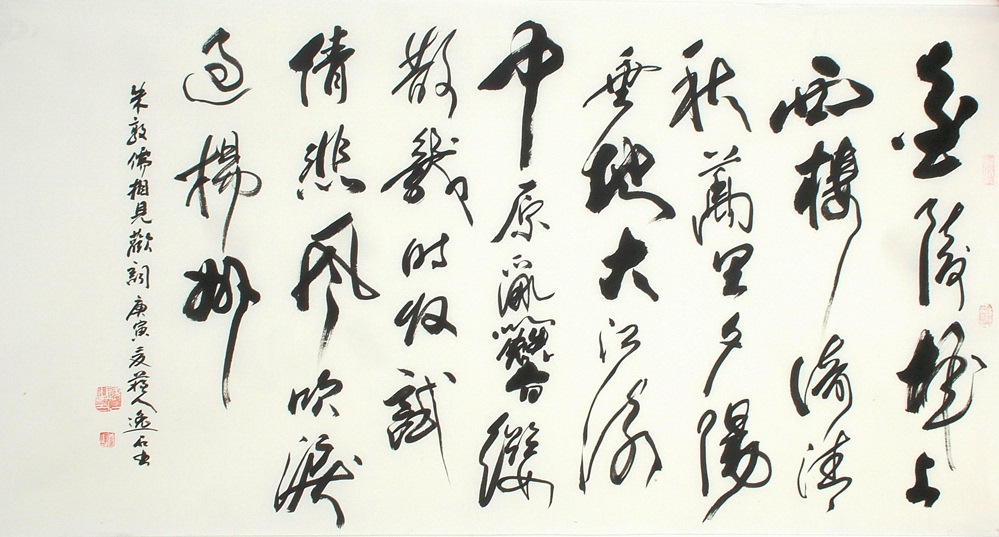 金陵城上
西樓倚清
秋萬里夕陽
垂地大江流
中原亂簪纓
散幾时收試
倩悲風吹淚
過楊州
朱敦儒相見歡詞庚寅夏蘇人逸石书